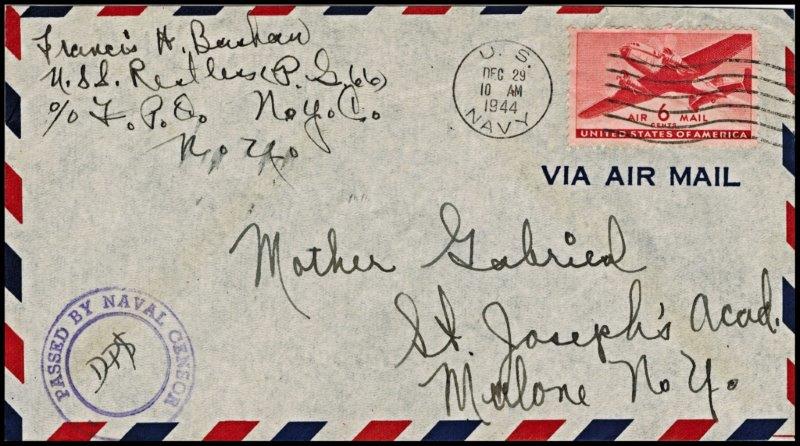 Francis H. Bashaw
U.S.S. Restless (P.G. 66)
c/o F.P.O. N.Y.C.
N.Y.
U. S.
DEC 29
10 AM
1944
NAVY
AIR 6 MAIL
CENTS
UNITED STATES OF AMERICA
VIA AIR MAIL
Mother Gabriel
St. Joseph's Acad.
Malone N.Y.
PASSED BY NAVAL CENSOR